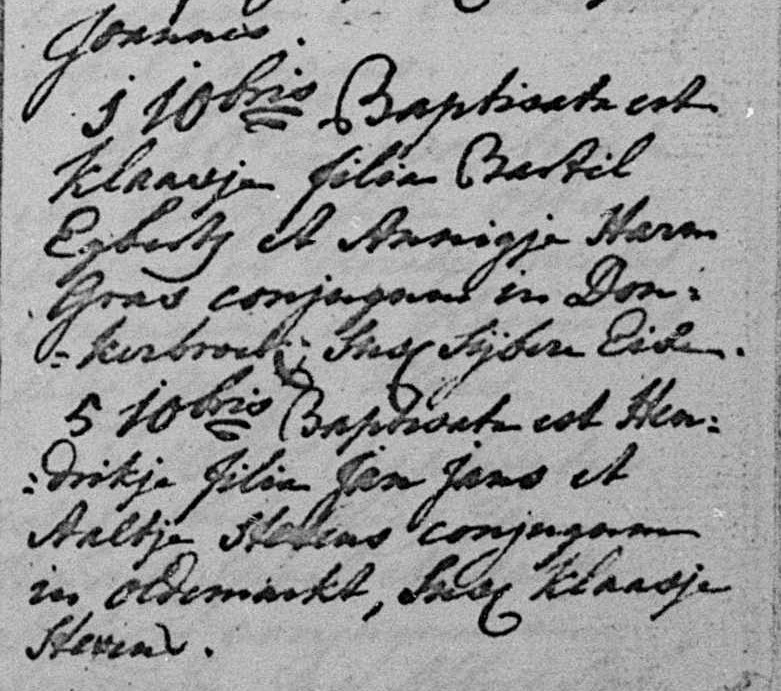 Joannes.
j 10bris Baptisata est
Klaasje filia Bartel
Egberts et Annigje Harm
Gras conjugum in Don=
=kerbroek; Susc Sijbere Eise.
5 10bris Baptisata est Hen=
=drikje filia Jan Jans et
Aaltje Stevens conjugum
in oldemarkt, Susc Klaasje
Stevens.